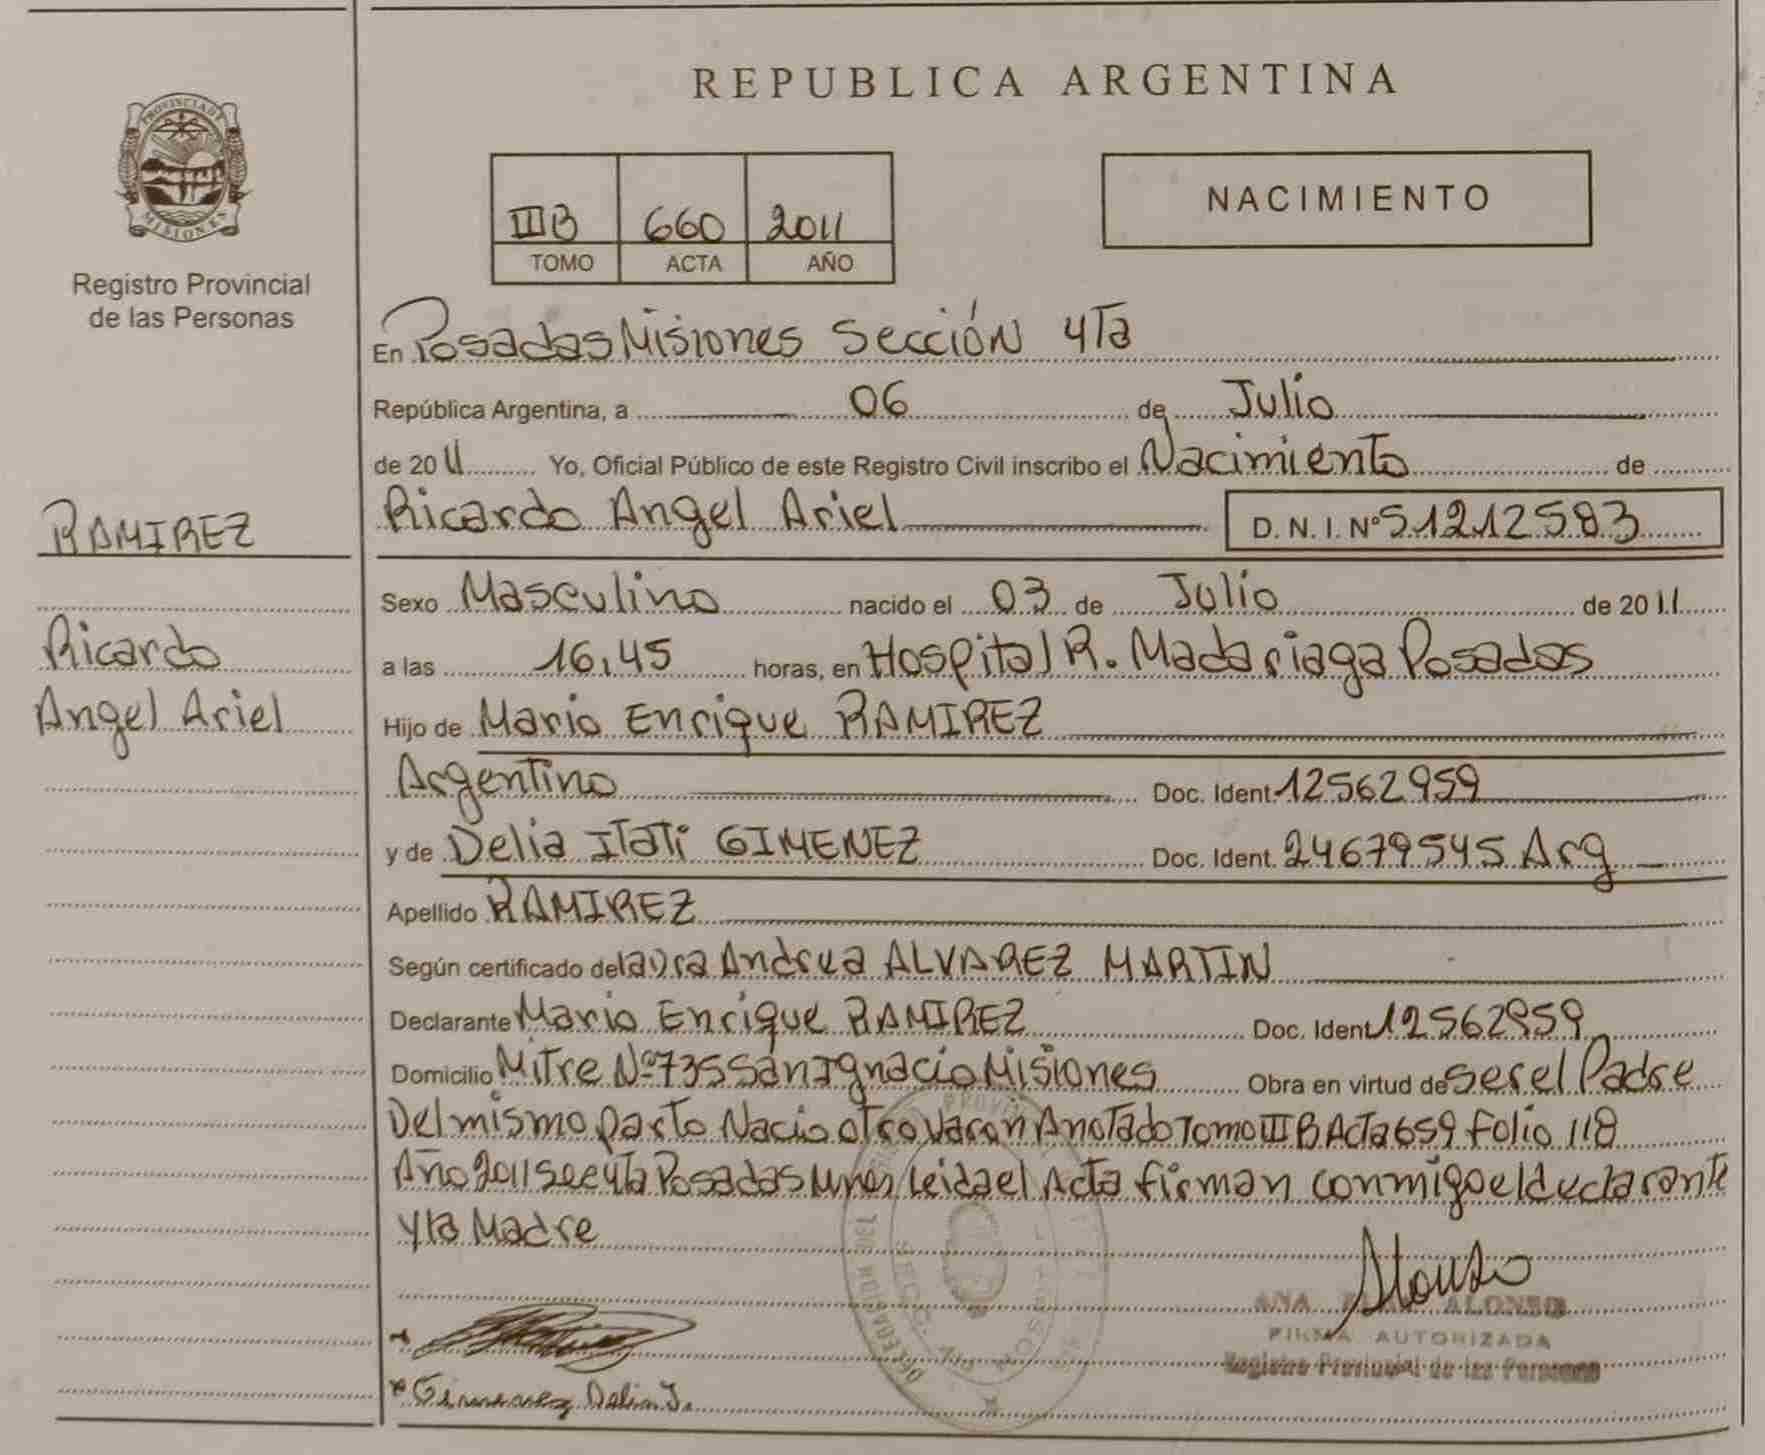 REPUBLICA ARGENTINA
PROVINCIA DE
MISIONES
Registro Provincial
de las Personas
IIIB 660 2011
TOMO ACTA AÑO
NACIMIENTO
En Posadas Misiones Sección 4Ta
República Argentina, a 06 de Julio
de 2011 Yo, Oficial Público de este Registro Civil inscribo el Nacimiento de
RAMIREZ
Ricardo Angel Ariel D. N. I. Nº 51212583
Sexo Masculino nacido el 03 de Julio de 2011
Ricardo
Angel Ariel
a las 16,45 horas, en Hospital R. Madariaga Posadas
Hijo de Mario Enrique RAMIREZ
Argentino Doc. Ident. 12562959
y de Delia Itati GIMENEZ Doc. Ident. 24679545 Arg
Apellido RAMIREZ
Según certificado de laura Andrea ALVAREZ MARTIN
Declarante Mario Enrique RAMIREZ Doc. Ident. 12562959
Domicilio Mitre Nº 735 San Ignacio Misiones Obra en virtud de ser el Padre
Del mismo parto Nacio otro Varon Anotado Tomo IIIB Acta 659 Folio 118
Año 2011 sec 4ta Posadas Mnes Leida el Acta firman conmigo el declarante
y la Madre
Alonso
ANA ALONSO
FIRMA AUTORIZADA
Registro Provincial de las Personas
Gimenez Delia I.